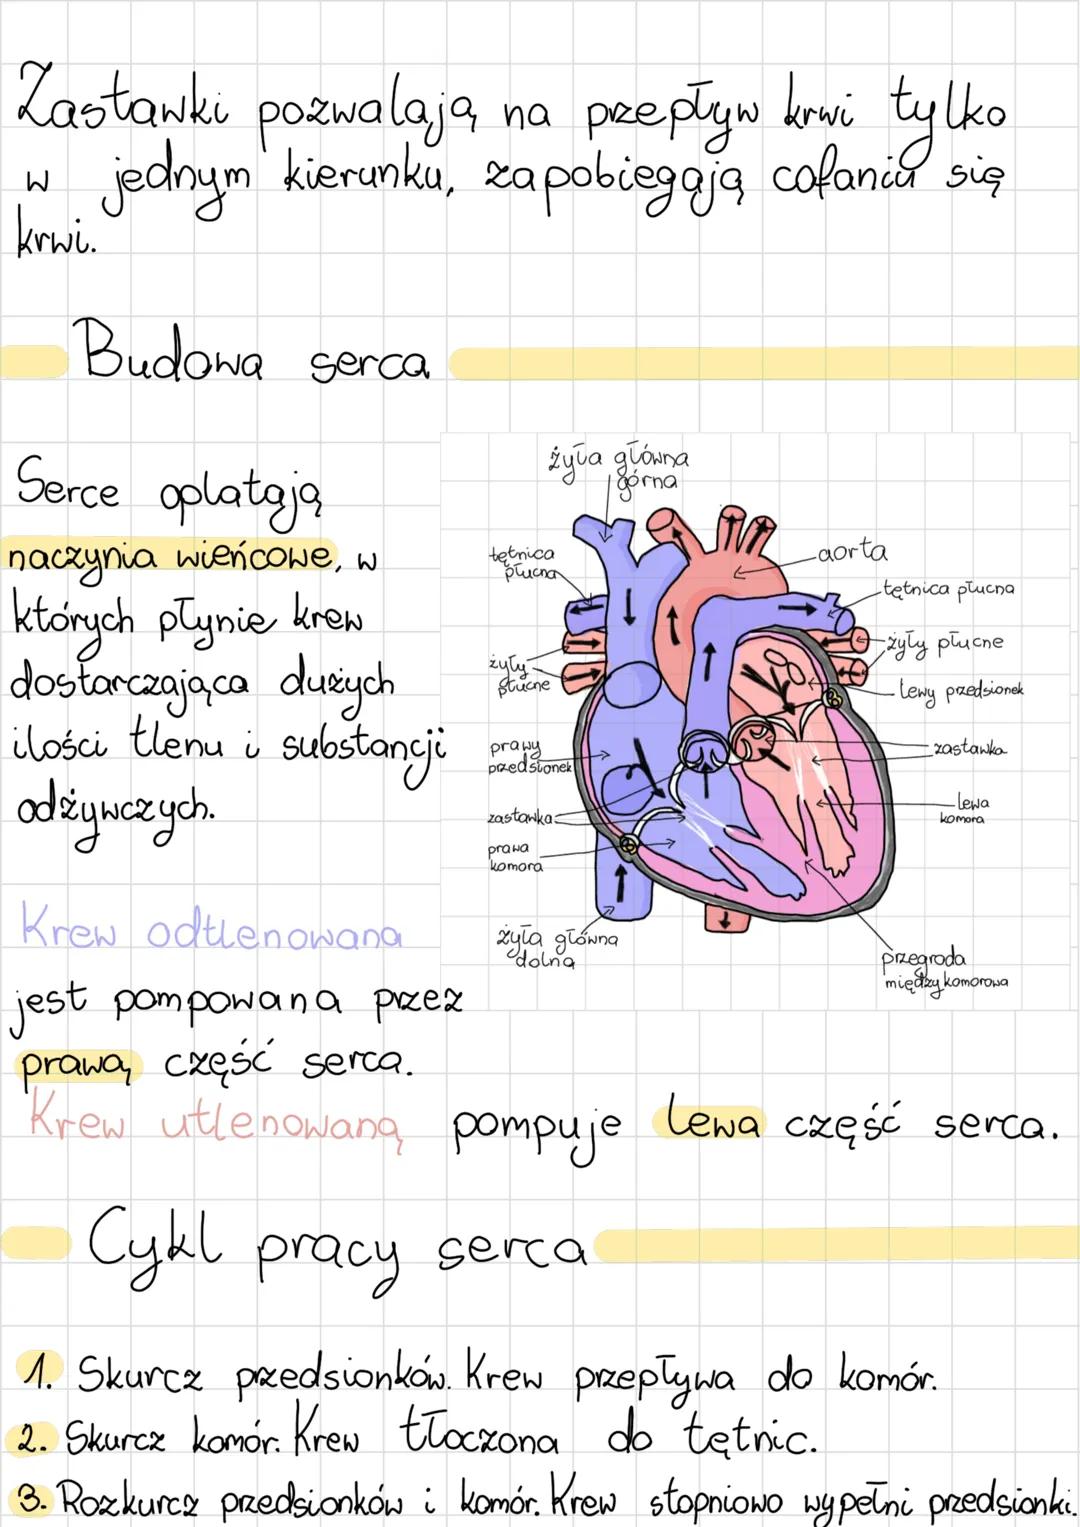 Zastawki pozwalają na przepływ krwi tylko
w jednym kierunku, zapobiegają cofaniu się
krwi.
Budowa serca
Serce oplatają
naczynia wieńcowe, w
których płynie krew
dostarczająca dużych
ilości tlenu i substancji
odżywczych.
żyła główna
górna
tętnica
płucna
aorta
tętnica płucna
żyły
płucne
żyły płucne
lewy przedsionek
prawy
przedsionek
zastawka
zastawka
lewa
komora
prawa
komora
żyła główna
dolna
przegroda
międzykomorowa
Krew odtlenowana
jest pompowana przez
prawą część serca.
Krew utlenowaną pompuje lewa część serca.
Cykl pracy serca
1. Skurcz przedsionków. Krew przepływa do komór.
2. Skurcz komór. Krew tłoczona do tętnic.
3. Rozkurcz przedsionków i komór. Krew stopniowo wypełni przedsionki.